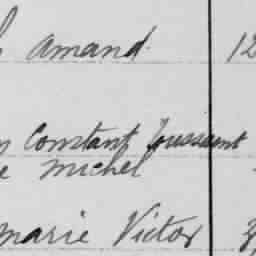 Amand 12
Constant Toussaint
e Michel
Marie Victor 3